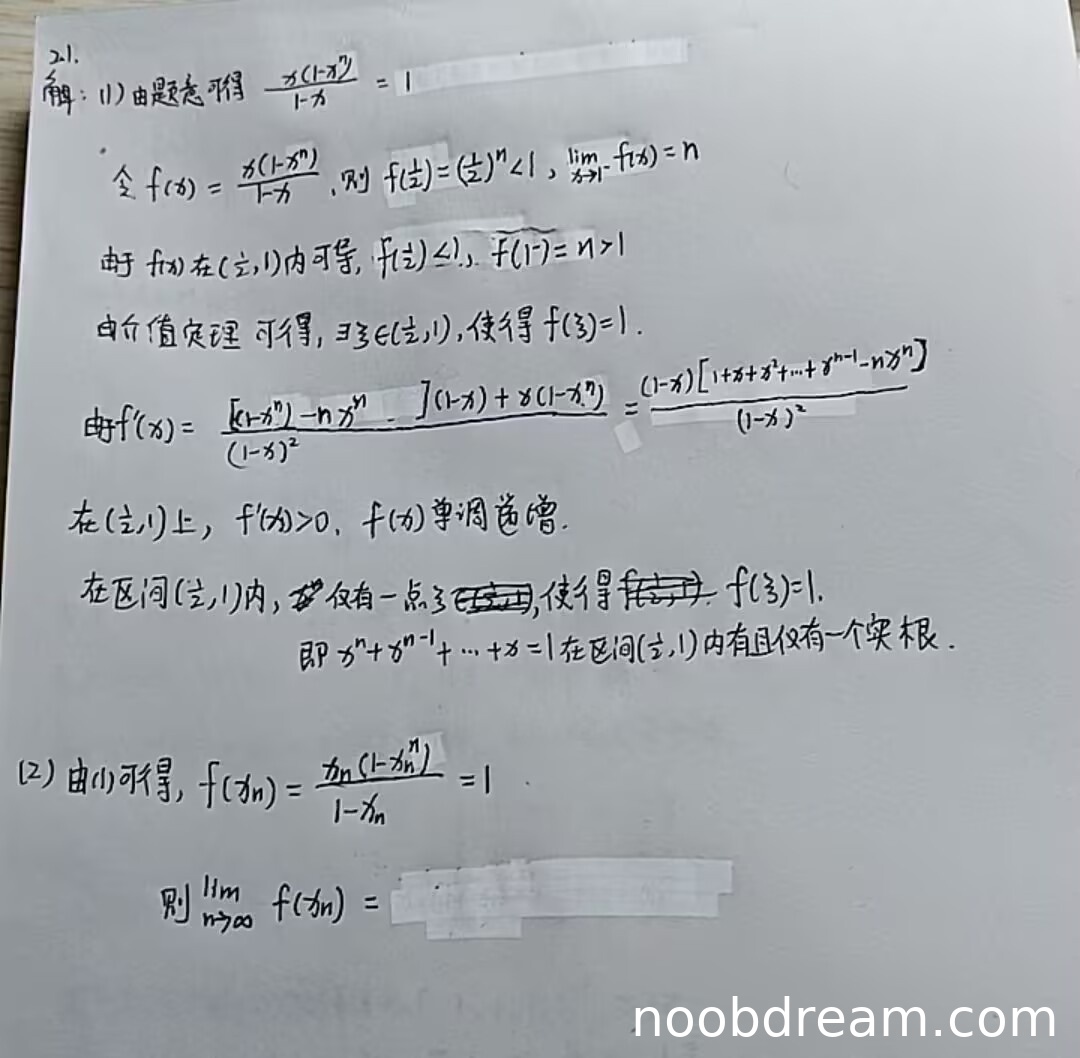 21.
解: (1) 由题意可得 x(1-xⁿ)/(1-x) = 1
令 f(x) = x(1-xⁿ)/(1-x), 则 f(½)=(½)ⁿ<1, lim x→1⁻ f(x)=n
由于 f(x) 在(½,1)内可导, f(½)<1, f(1-)=n>1
由介值定理 可得, ∃ξ∈(½,1), 使得 f(ξ)=1.
由于f'(x) = [(1-xⁿ)-nxⁿ ](1-x)+x(1-xⁿ)/(1-x)² = (1-x)[1+x+x²+…+xⁿ⁻¹-nxⁿ]/(1-x)²
在(½,1)上, f'(x)>0, f(x)单调递增.
在区间(½,1)内, 仅有一点ξ, 使得 f(ξ)=1.
即 xⁿ+xⁿ⁻¹+…+x=1在区间(½,1)内有且仅有一个实根.
(2) 由(1)可得, f(xₙ) = xₙ(1-xₙⁿ)/(1-xₙ) = 1
则 lim n→∞ f(xₙ) =
noobdream.com